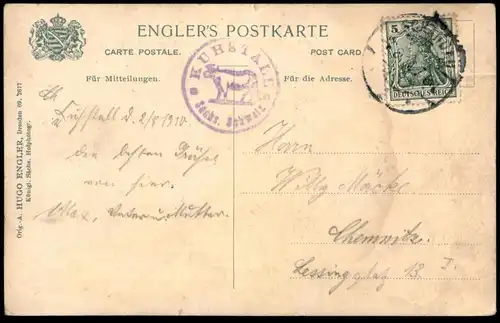 ENGLER'S POSTKARTE
CARTE POSTALE.
POST CARD.
Für Mitteilungen.
Für die Adresse.
Orig.-A. HUGO ENGLER, Dresden 69. 7677
Königl. Sächs. Hofphotogr.
KUHSTALL
Sächs. Schweiz.
5
DEUTSCHES REICH
Kuhstall d. 2/8 1910
Die besten Grüße
von hier.
Max, Vater u. Mutter.
Herrn
Willy Möcke
Chemnitz
Lessingplatz 13 I.